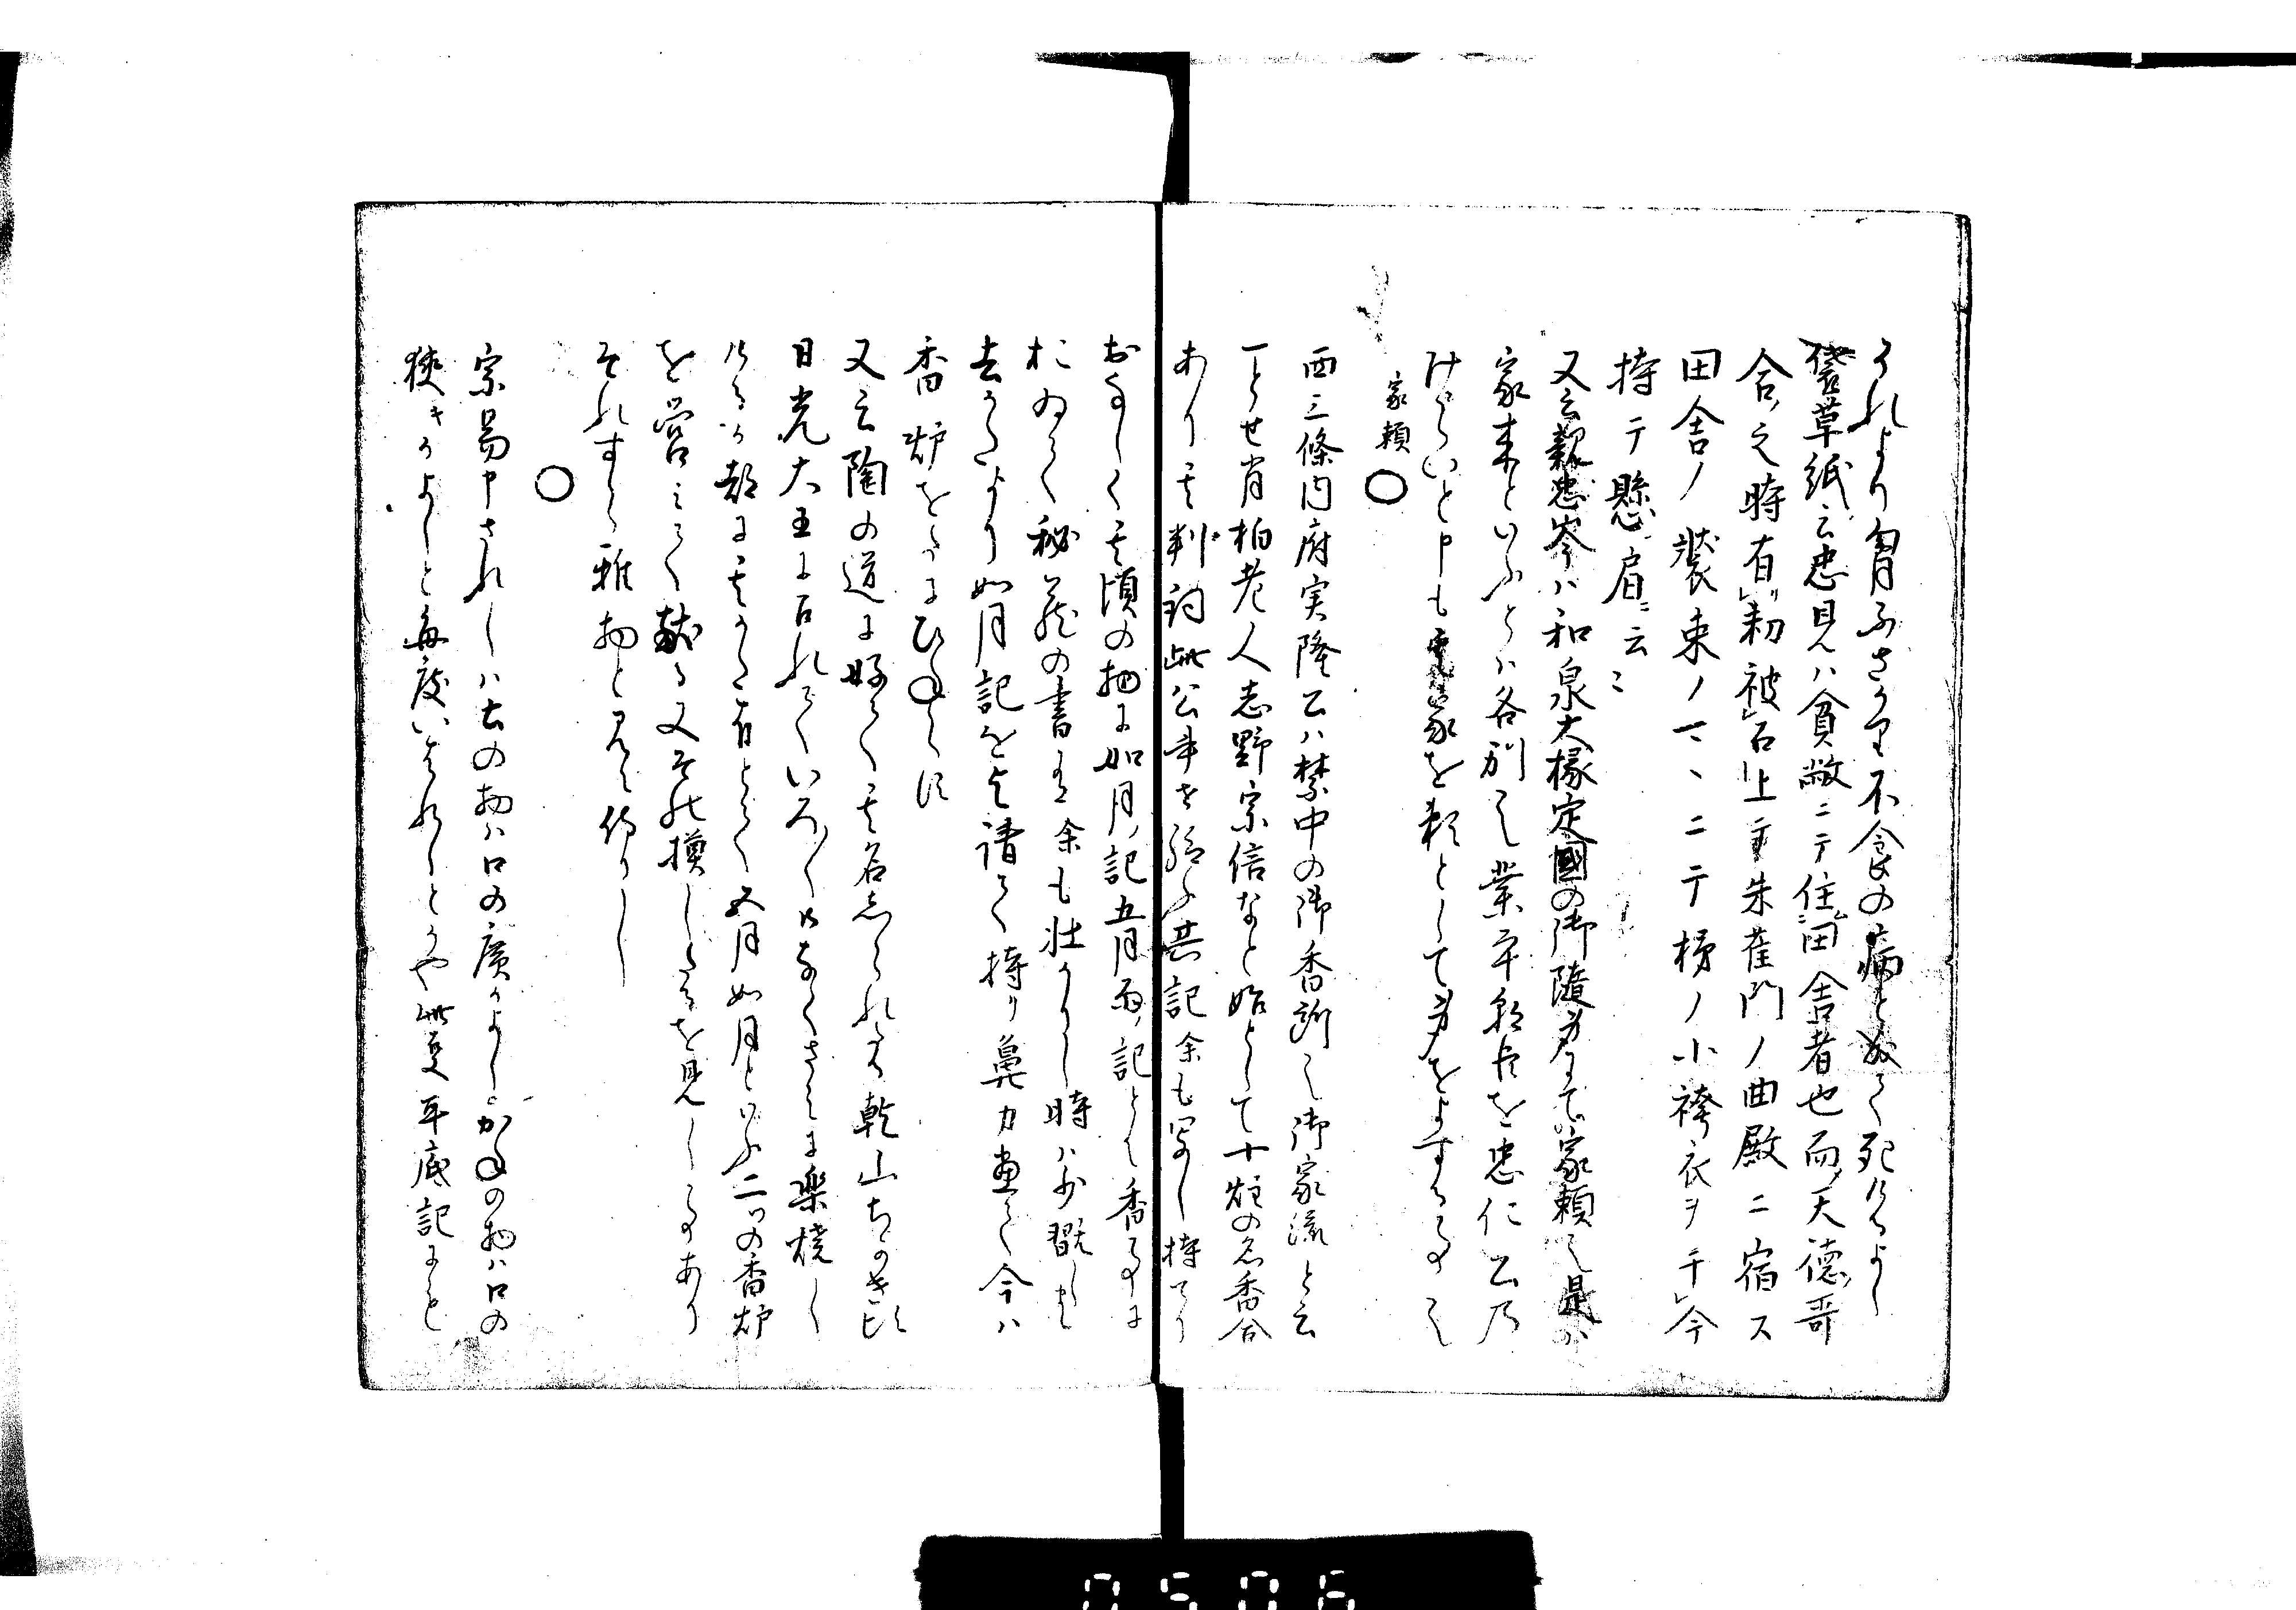 それより胸ふさかり不食の病と成て死けるよし
袋草紙云忠見ハ貧敝ニテ住田舎者也而天徳哥
合之時有勅被召上ニ朱雀門ノ曲殿ニ宿ス
田舎ノ装束ノマヽニテ柿ノ小袴衣ヲ于今
持テ懸肩ニ云々
又云忠岑ハ和泉大掾定國の御随身にて家頼也是ハ
家来といふとハ各別也業平朝臣を忠仁公の
けらいと申も家を頼として身をよするる事也
家頼
○
西三條内府実隆公ハ禁中の御香所也御家流と云
一とせ肖柏老人志野宗信なと始として十炷の名香合
あり其判詞此公書せ給ふ其記余も写し持てり
おなしく其頃の物に如月ノ記五月雨ノ記とて香事に
おゐて秘蔵の書也余も壮かりし時ハ少翫しまゝ
去かたより如月記を乞請て持り鼻力重て今ハ
香炉をたにひねらす
又云陶の道に好て其名しられたる乾山ちかき比
日光大王に召れていろ〳〵めなくさみに楽焼し
けるか都に其かた有とて五月如月といふ二ツの香炉
を営みて献る又それ模したるを見し事あり
それすら雅物と見え侍りし
○
宗易申されしハ土の物ハ口の廣かよしかねの物ハ口の
狭キかよしと毎度いはれしとかや此叓耳底記にも